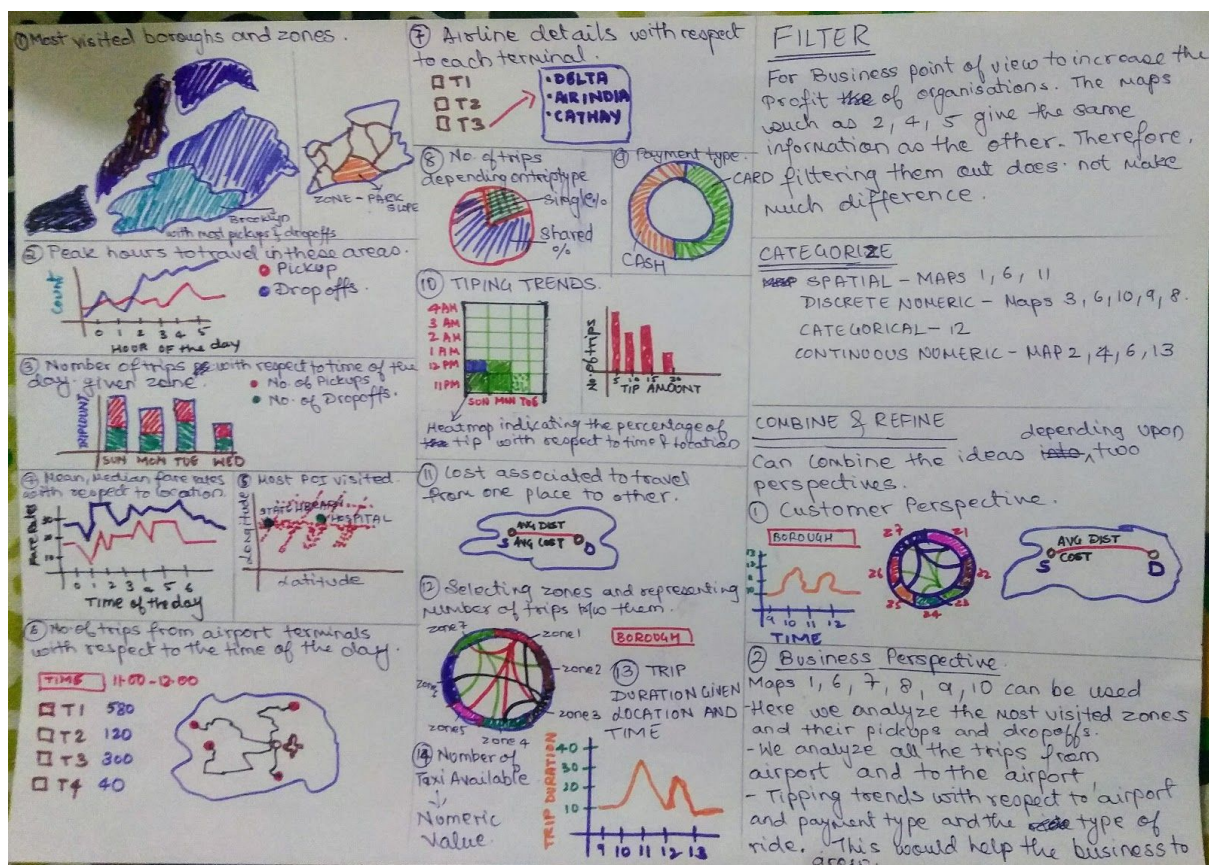 ① Most visited boroughs and zones.
ZONE - PARK
SLOPE
Brooklyn
with most pickups & dropoffs
② Peak hours to travel in these areas.
Pickup
Drop offs.
Count
0 1 2 3 4 5
HOUR OF the day
③ Number of trips with respect to time of the
day given zone.
No. of Pickups
No. of Dropoffs.
TRIPCOUNT
SUN MON TUE WED
④ Mean, Median fare rates
with respect to location.
Fare Rates
30
20
10
0 1 2 3 4 5 6
Time of the day
⑤ Most POI visited.
HOSPITAL
Longitude
Latitude
⑥ No. of trips from airport terminals
with respect to the time of the day.
TIME 11:00-12:00
T1 580
T2 120
T3 300
T4 40
⑦ Airline details with respect
to each terminal.
T1
T2
T3
• DELTA
• AIR INDIA
• CATHAY
⑧ No. of trips
depending on triptype
single%
Shared
%
⑨ Payment type.
CARD
CASH
⑩ TIPING TRENDS.
4AM
3 AM
2 AM
1 AM
12 PM
11PM
SUN MON TUE
No. of trips
5 10 15 20
TIP AMOUNT
Heatmap indicating the percentage of
tip with respect to time & location
⑪ Cost associated to travel
from one place to other.
AVG DIST
S AVG COST D
⑫ Selecting zones and representing
number of trips b/w them.
zone7
zone1
zone2
zone3
zone 4
zone5
BOROUGH
⑬ TRIP
DURATION GIVEN
LOCATION AND
TIME
TRIP DURATION
40
30
20
10
9 10 11 12 13
⑭ Number of
Taxi Available
↓
Numeric
Value.
FILTER
For Business point of view to increase the
Profit of organisations. The maps
such as 2, 4, 5 give the same
information as the other. Therefore,
filtering them out does not make
much difference.
CATEGORIZE
SPATIAL - MAPS 1, 6, 11
DISCRETE NUMERIC - Maps 3, 6, 10, 9, 8.
CATEGORICAL - 12
CONTINOUS NUMERIC - MAP 2, 4, 6, 13
COMBINE & REFINE
depending upon
Can combine the ideas two
perspectives.
① Customer Perspective.
BOROUGH
9 10 11 12
TIME
Z7
Z1
Z6
Z2
Z5
Z4
Z3
AVG DIST
S COST D
② Business Perspective.
Maps 1, 6, 7, 8, 9, 10 can be used
- Here we analyze the most visited zones
and their pickups and dropoffs.
- We analyze all the trips from
airport and to the airport,
- Tipping trends with respect to airport
and payment type and the type of
ride. This would help the business to
grow.